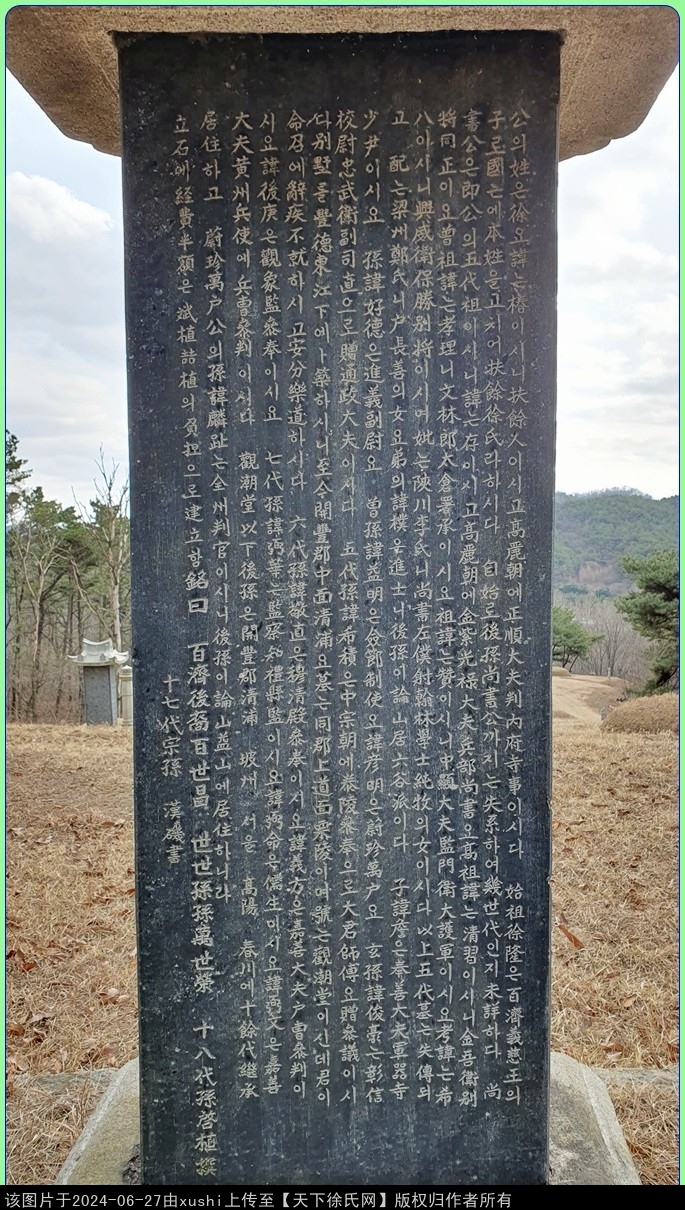 公의 姓은 徐요 諱는 椿이시니 扶餘人이시고 高麗朝에 正順大夫判內府寺事이시다 始祖徐隆은 百濟義慈王의
子로 國亡에 本姓을 고치어 扶餘徐氏라하시다 自始로 後孫尙書公까지는 失系하여 幾世代인지 未詳하다 尙
書公은 即公의 五代祖이시니 諱는 存이시고 高麗朝에 金紫光祿大夫兵部尙書요 高祖諱는 淸習이시니 金吾衛別
將同正이요 曾祖諱는 孝理니 文林郎太倉署承이시요 祖諱는 贊이시니 中顯大夫監門衛大護軍이시요 考諱는 希
八이시니 興威衛保勝別將이시며 妣는 陜川李氏니 尙書左僕射翰林學士純牧의 女이시다 以上五代墓는 失傳되
고 配는 梁州鄭氏니 户長善의 女요 弟의 諱樸은 進士니 後孫이 論山居六谷派이다 子諱 은 奉善大夫軍器寺
少尹이시요 孫諱好德은 進義副尉요 曾孫諱益明은 僉節制使요 諱彦明은 蔚珍萬户요 玄孫諱俊豪는 彰信
校尉忠武衛副司直으로 贈通政大夫이시다 五代孫諱希積은 中宗朝에 泰陵叅奉으로 大君師傅요 贈叅議이시
다 別墅를 豐德東江下에 卜築하시니 至今開豐郡中面淸浦요 墓는 同郡上道面 陵이며 號는 觀潮堂이신데 君이
命召에 辭疾不就하시고 安分樂道하시다 六代孫諱 直은 穆淸殿叅奉이시요 諱義方은 嘉善大夫户曹叅判이
시요 諱後庚은 觀象監叅奉이시요 七代孫諱弼華는 監察知禮縣監이시요 諱 命은 儒生이시요 諱 文은 嘉善
大夫黄州兵使에 兵曹叅判이시다 觀潮堂以下後孫은 開豐郡淸浦 坡州 서울 高陽 春川에 十餘代継承
居住하고 蔚珍萬户公의 孫諱麟趾는 全州判官이시니 後孫이 論山 山에 居住하니라
立石에 経費半額은 斌植喆植의 負担으로 建立항 銘曰 百濟後裔百世昌 世世孫孫萬世榮 十八代孫啓植撰
十七代宗孫 漢 書
该图片于2024-06-27由xushi上传至【天下徐氏网】版权归作者所有